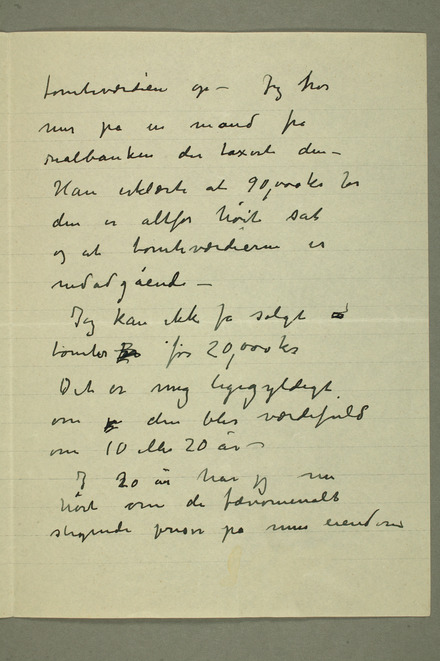 tomteværdien op – Jeg tror
mer på en mand fra
realbanken der taxerte den –
Han erklærte at 90,000 kr for
den er altfor höit sat
og at tomteværdierne er
nedadgående –
Jeg kan ikke få solgt
tomter for 20,000 kr
Det er mig ligegyldigt
om den blir værdifuld
om 10 eller 20 år –
I 20 år har jeg nu
hört om de fænomenalt
stigende priser på mine eiendomme